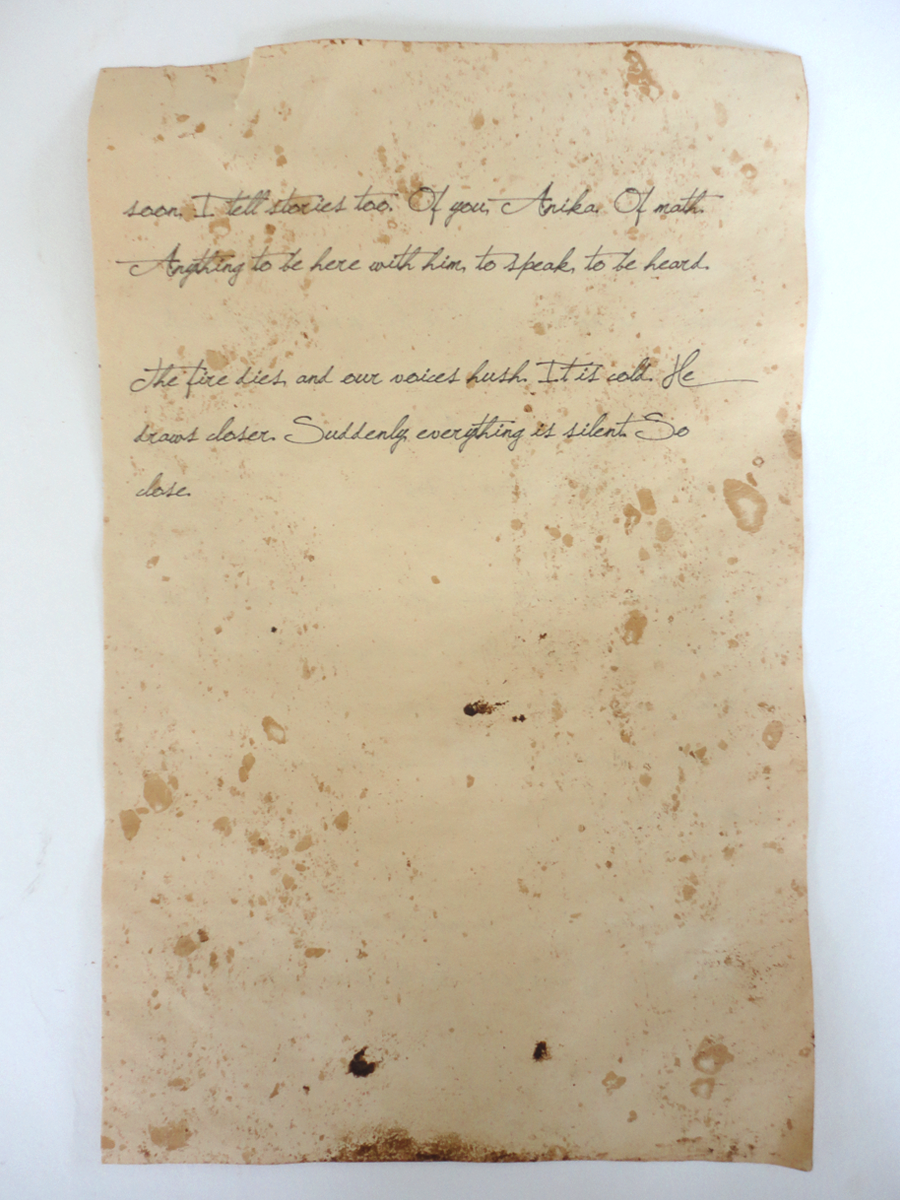 soon. I tell stories too. Of you, Anika. Of math.
Anything to be here with him, to speak, to be heard.
The fire dies, and our voices hush. It is cold. He
draws closer. Suddenly, everything is silent. So
close.